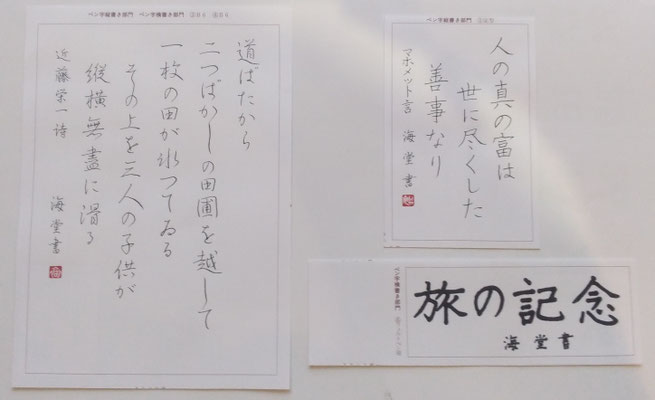 ペン字縦書き部門 ペン字横書き部門
道ばたから
二つばかしの田圃を越して
一枚の田が氷つてゐる
その上を三人の子供が
縦横無盡に滑る
近藤栄一詩
海堂書
ペン字縦書き部門
人の真の富は
世に尽くした
善事なり
マホメット言
海堂書
ペン字横書き部門
旅の記念
海堂書